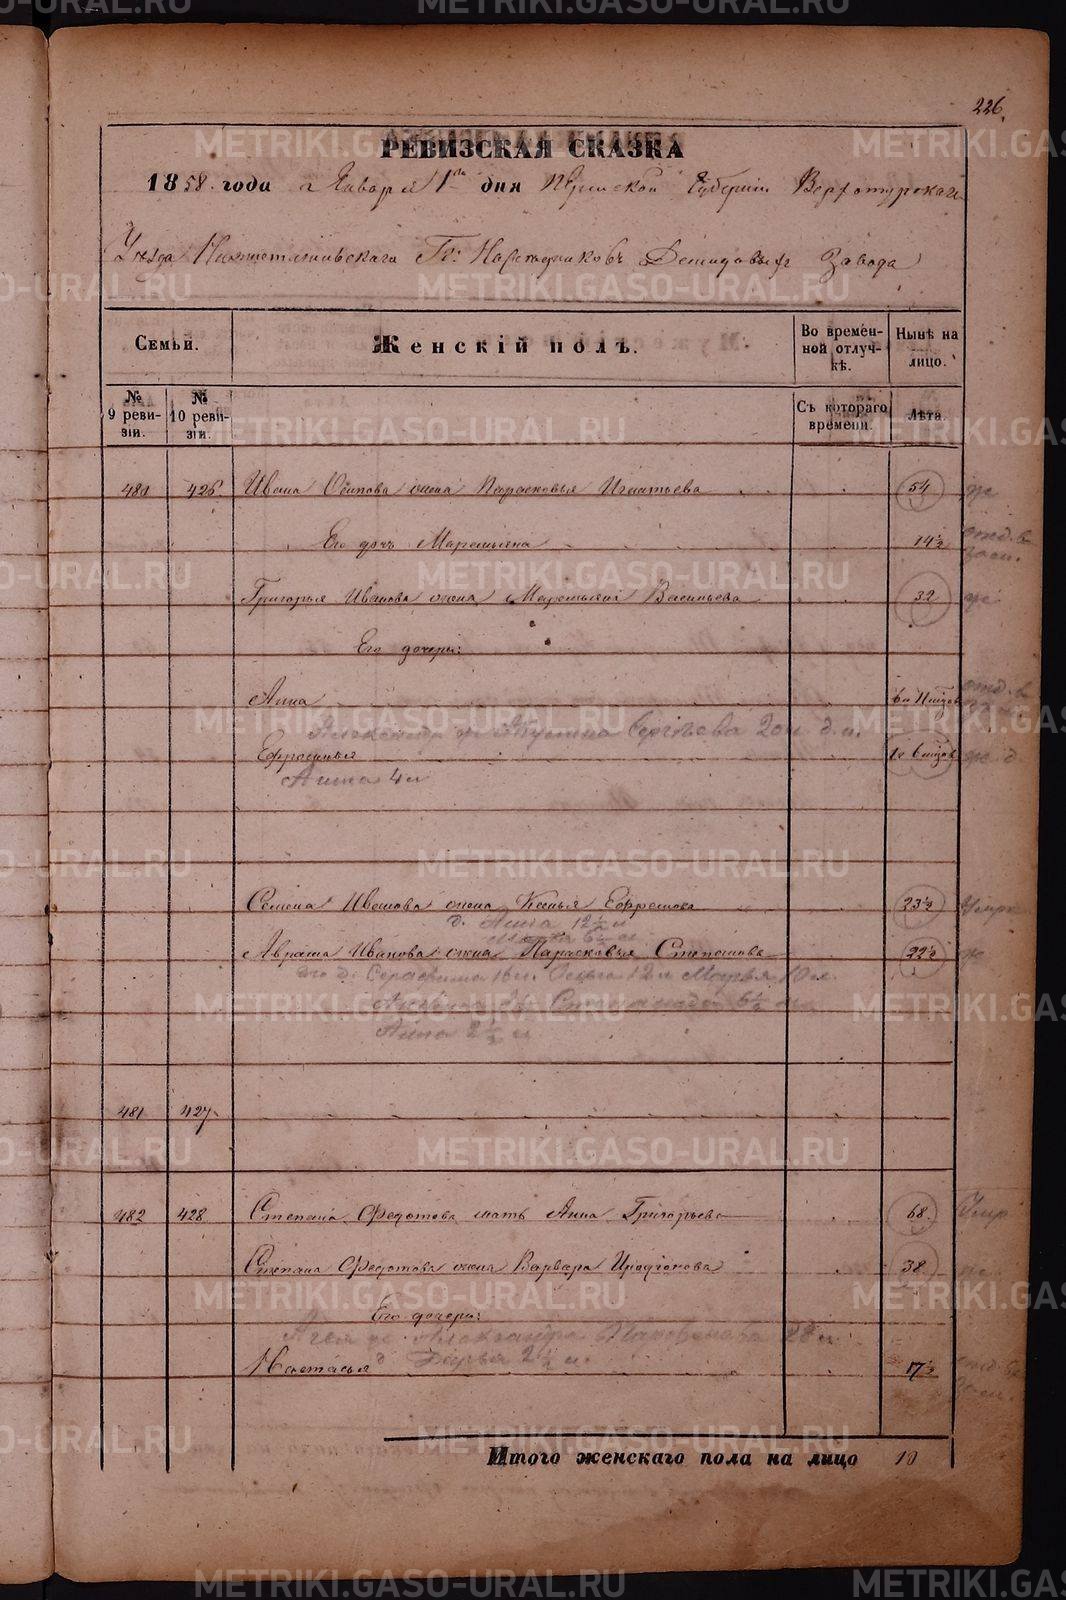 226.
РЕВИЗСКАЯ СКАЗКА
1858 года Января 1го дня Пермской Губернии Верхотурскаго
Уѣзда Нижнетагильскаго Гг: Наследниковъ Демидовыхъ Завода
Семьи.
Женскій полъ.
Во времен-
ной отлуч-
кѣ.
Нынѣ на
лицо.
№
9 реви-
зіи.
№
10 реви-
зіи.
Съ котораго
времени.
Лѣта.
480 426 Ивана Осипова жена Парасковья Игнатьева 54
Его дочь Маремьяна 14½
Григорья Иванова жена Маремьяна Васильева 32
Его дочери:
Анна
Сергѣева
Ефросинья
Анна 4
Семена Иванова жена Ксенья Ефремова 23½
д. Анна 12½
Аврама Иванова жена Парасковья Степанова 22½
Его д. Серафима 16 12 Марья 10
6½
Анна 2½
481 427
482 428 Степана Федотова мать Анна Григорьева 68 Умр
Степана Федотова жена Варвара Иродіонова 38
Его дочери:
Александра 28
Настасья д Дарья 2½ 17½
Итого женскаго пола на лицо 10
METRIKI.GASO-URAL.RU